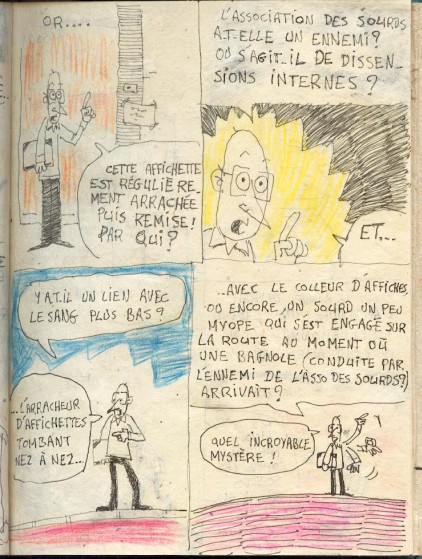 OR....
CETTE AFFICHETTE
EST RÉGULIÈRE
MENT ARRACHÉE
PUIS REMISE!
PAR QUI?
L'ASSOCIATION DES SOURDS
A.T-ELLE UN ENNEMI?
OU S'AGIT-IL DE DISSEN-
SIONS INTERNES?
ET...
Y A.T.IL UN LIEN AVEC
LE SANG PLUS BAS?
...L'ARRACHEUR
D'AFFICHETTES
TOMBANT
NEZ À NEZ...
...AVEC LE COLLEUR D'AFFICHES
OU ENCORE, UN SOURD UN PEU
MYOPE QUI S'EST ENGAGÉ SUR
LA ROUTE AU MOMENT OÙ
UNE BAGNOLE (CONDUITE PAR
L'ENNEMI DE L'ASSO DES SOURDS?)
ARRIVAIT?
QUEL INCROYABLE
MYSTÈRE!